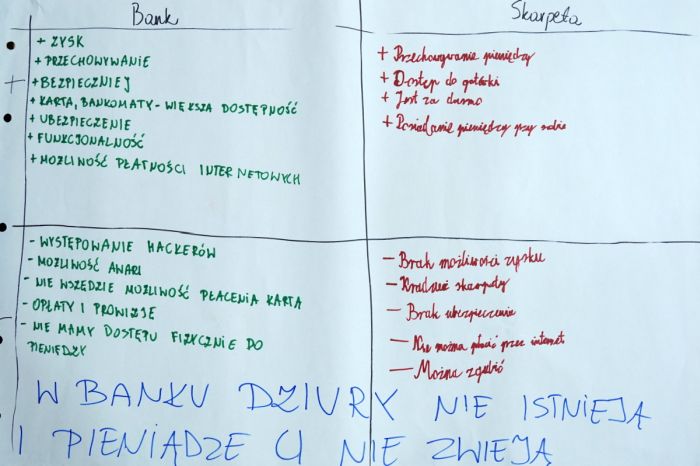 Bank
+ ZYSK
+ PRZECHOWYWANIE
+ BEZPIECZNIEJ
+ KARTA, BANKOMATY - WIĘKSZA DOSTĘPNOŚĆ
+ UBEZPIECZENIE
+ FUNKCJONALNOŚĆ
+ MOŻLIWOŚĆ PŁATNOŚCI INTERNETOWYCH
Skarpeta
+ Przechowywanie pieniędzy
+ Dostęp do gotówki
+ Jest za darmo
+ Posiadanie pieniędzy przy sobie
- WYSTĘPOWANIE HACKERÓW
- MOŻLIWOŚĆ AWARI
- NIE WSZĘDZIE MOŻLIWOŚĆ PŁACENIA KARTA
- OPŁATY I PROWIZJE
- NIE MAMY DOSTĘPU FIZYCZNIE DO
PIENIĘDZY
- Brak możliwości zysku
- Kradzież skarpety
- Brak ubezpieczenia
- Nie można płacić przez internet
- Można zgubić
W BANKU DZIURY NIE ISTNIEJĄ
I PIENIĄDZE CI NIE ZWIEJĄ